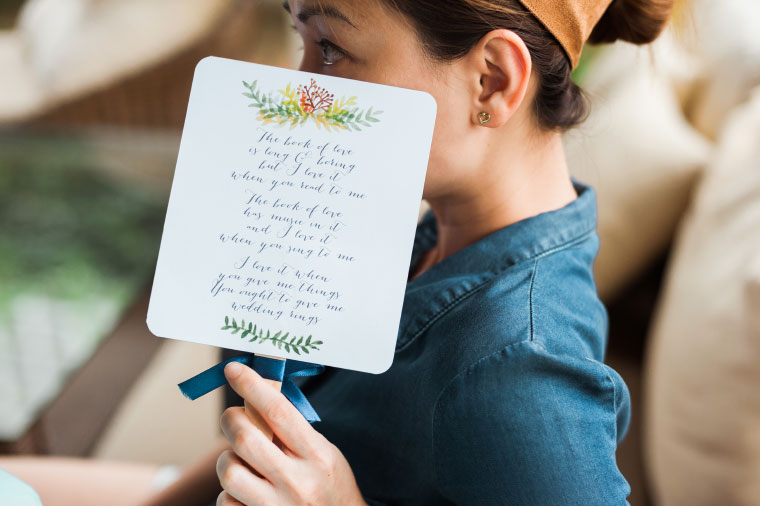 The book of love
is long & boring
but I love it
when you read to me
The book of love
has music in it
and I love it
when you song to me
I love it when
you give me things
You ought to give me
wedding rings